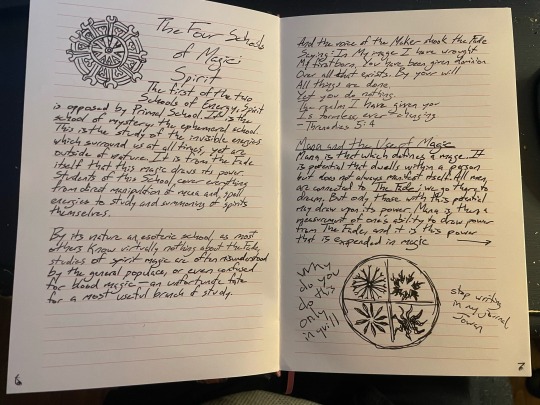 The Four Schools
of Magic:
Spirit
The first of the two
Schools of Energy, Spirit
is opposed by Primal School. It is the
school of mystery, the ephemeral school.
This is the study of the invisible energies
which surround us at all times, yet are
outside of nature. It is from the Fade
itself that this magic draws its power.
Students of this School cover everything
from direct manipulation of mana and spell
energies to study and summoning of spirits
themselves.
By its nature an esoteric school, as most
others know virtually nothing about the Fade,
studies of spirit magic are often misunderstood
by the general populace, or even confused
for blood magic - an unfortunate fate
for a most useful branch of study.
6
And the voice of the Maker shook the Fade
Saying: In My image I have wrought
My firstborn. You have been given dominion
Over all that exists. By your will
All things are done.
Yet you do nothing.
The realm I have given you
Is formless, ever-changing
- Threnodies 5:4
Mana and the Use of Magic
Mana is that which defines a mage. It
is potential that dwells within a person
but does not always manifest itself. All men
are connected to The Fade; we go there to
dream. But only those with this potential
may draw upon its power. Mana is then a
measurement of one's ability to draw power
from The Fade, and it is this power
that is expended in magic
why
do you
do this
only
in quill
stop writing
in my journal
Jowan
7